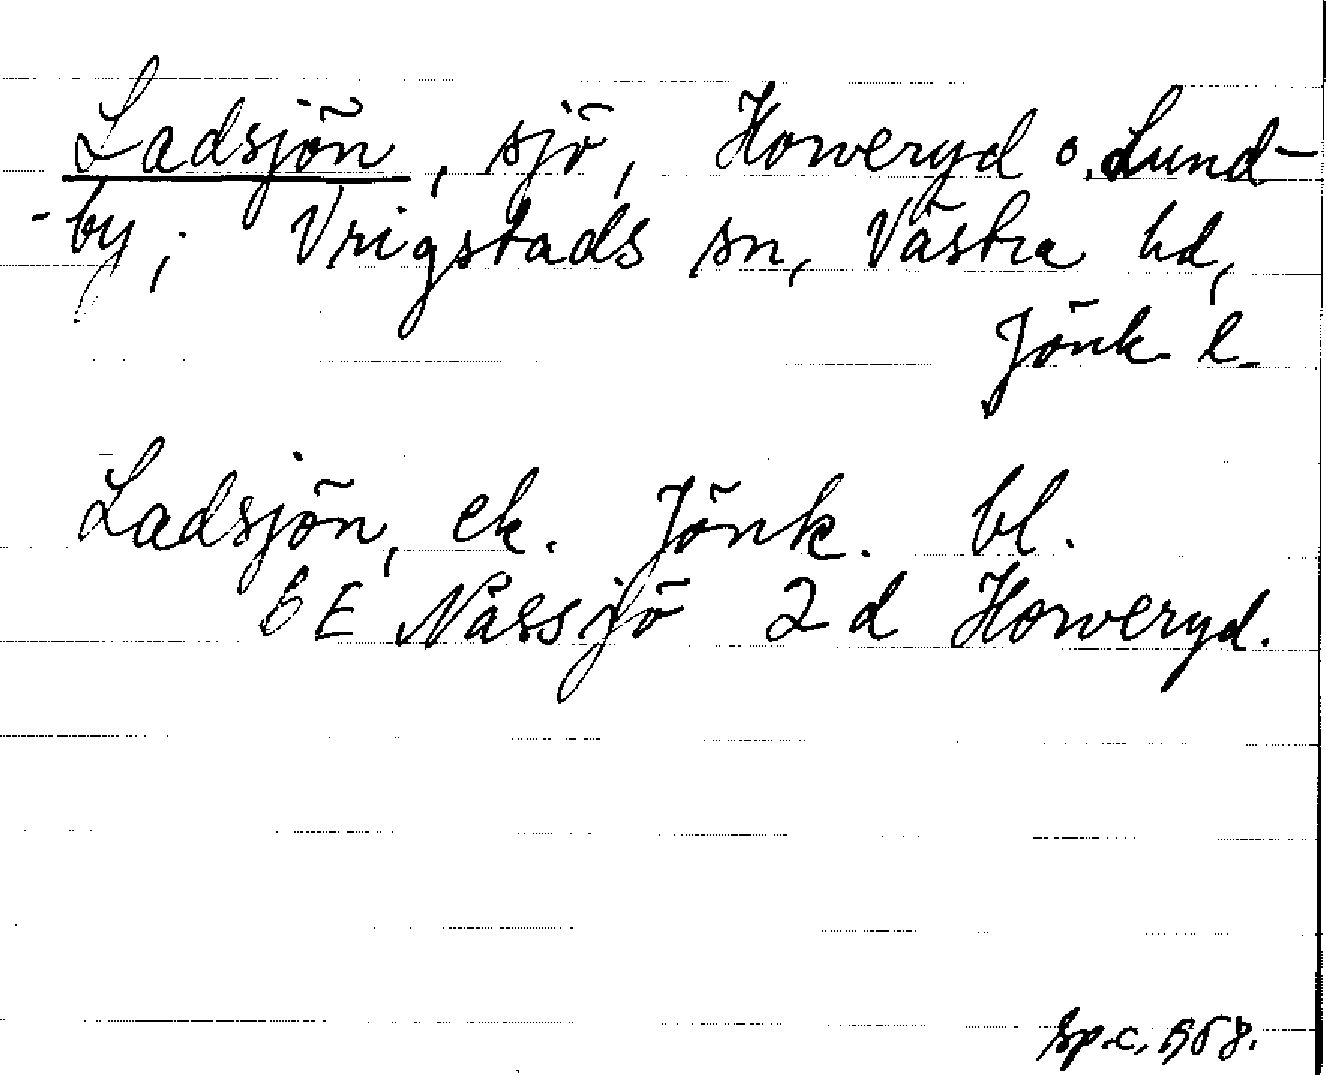 Ladsjön, sjö, Horveryd o. Lund-
-by; Vrigstads sn, Västra hd,
Jönk. l.
Ladsjön, ek. Jönk. bl.
6 E Nässjö 2 d Horveryd.
sp.c. 1958.